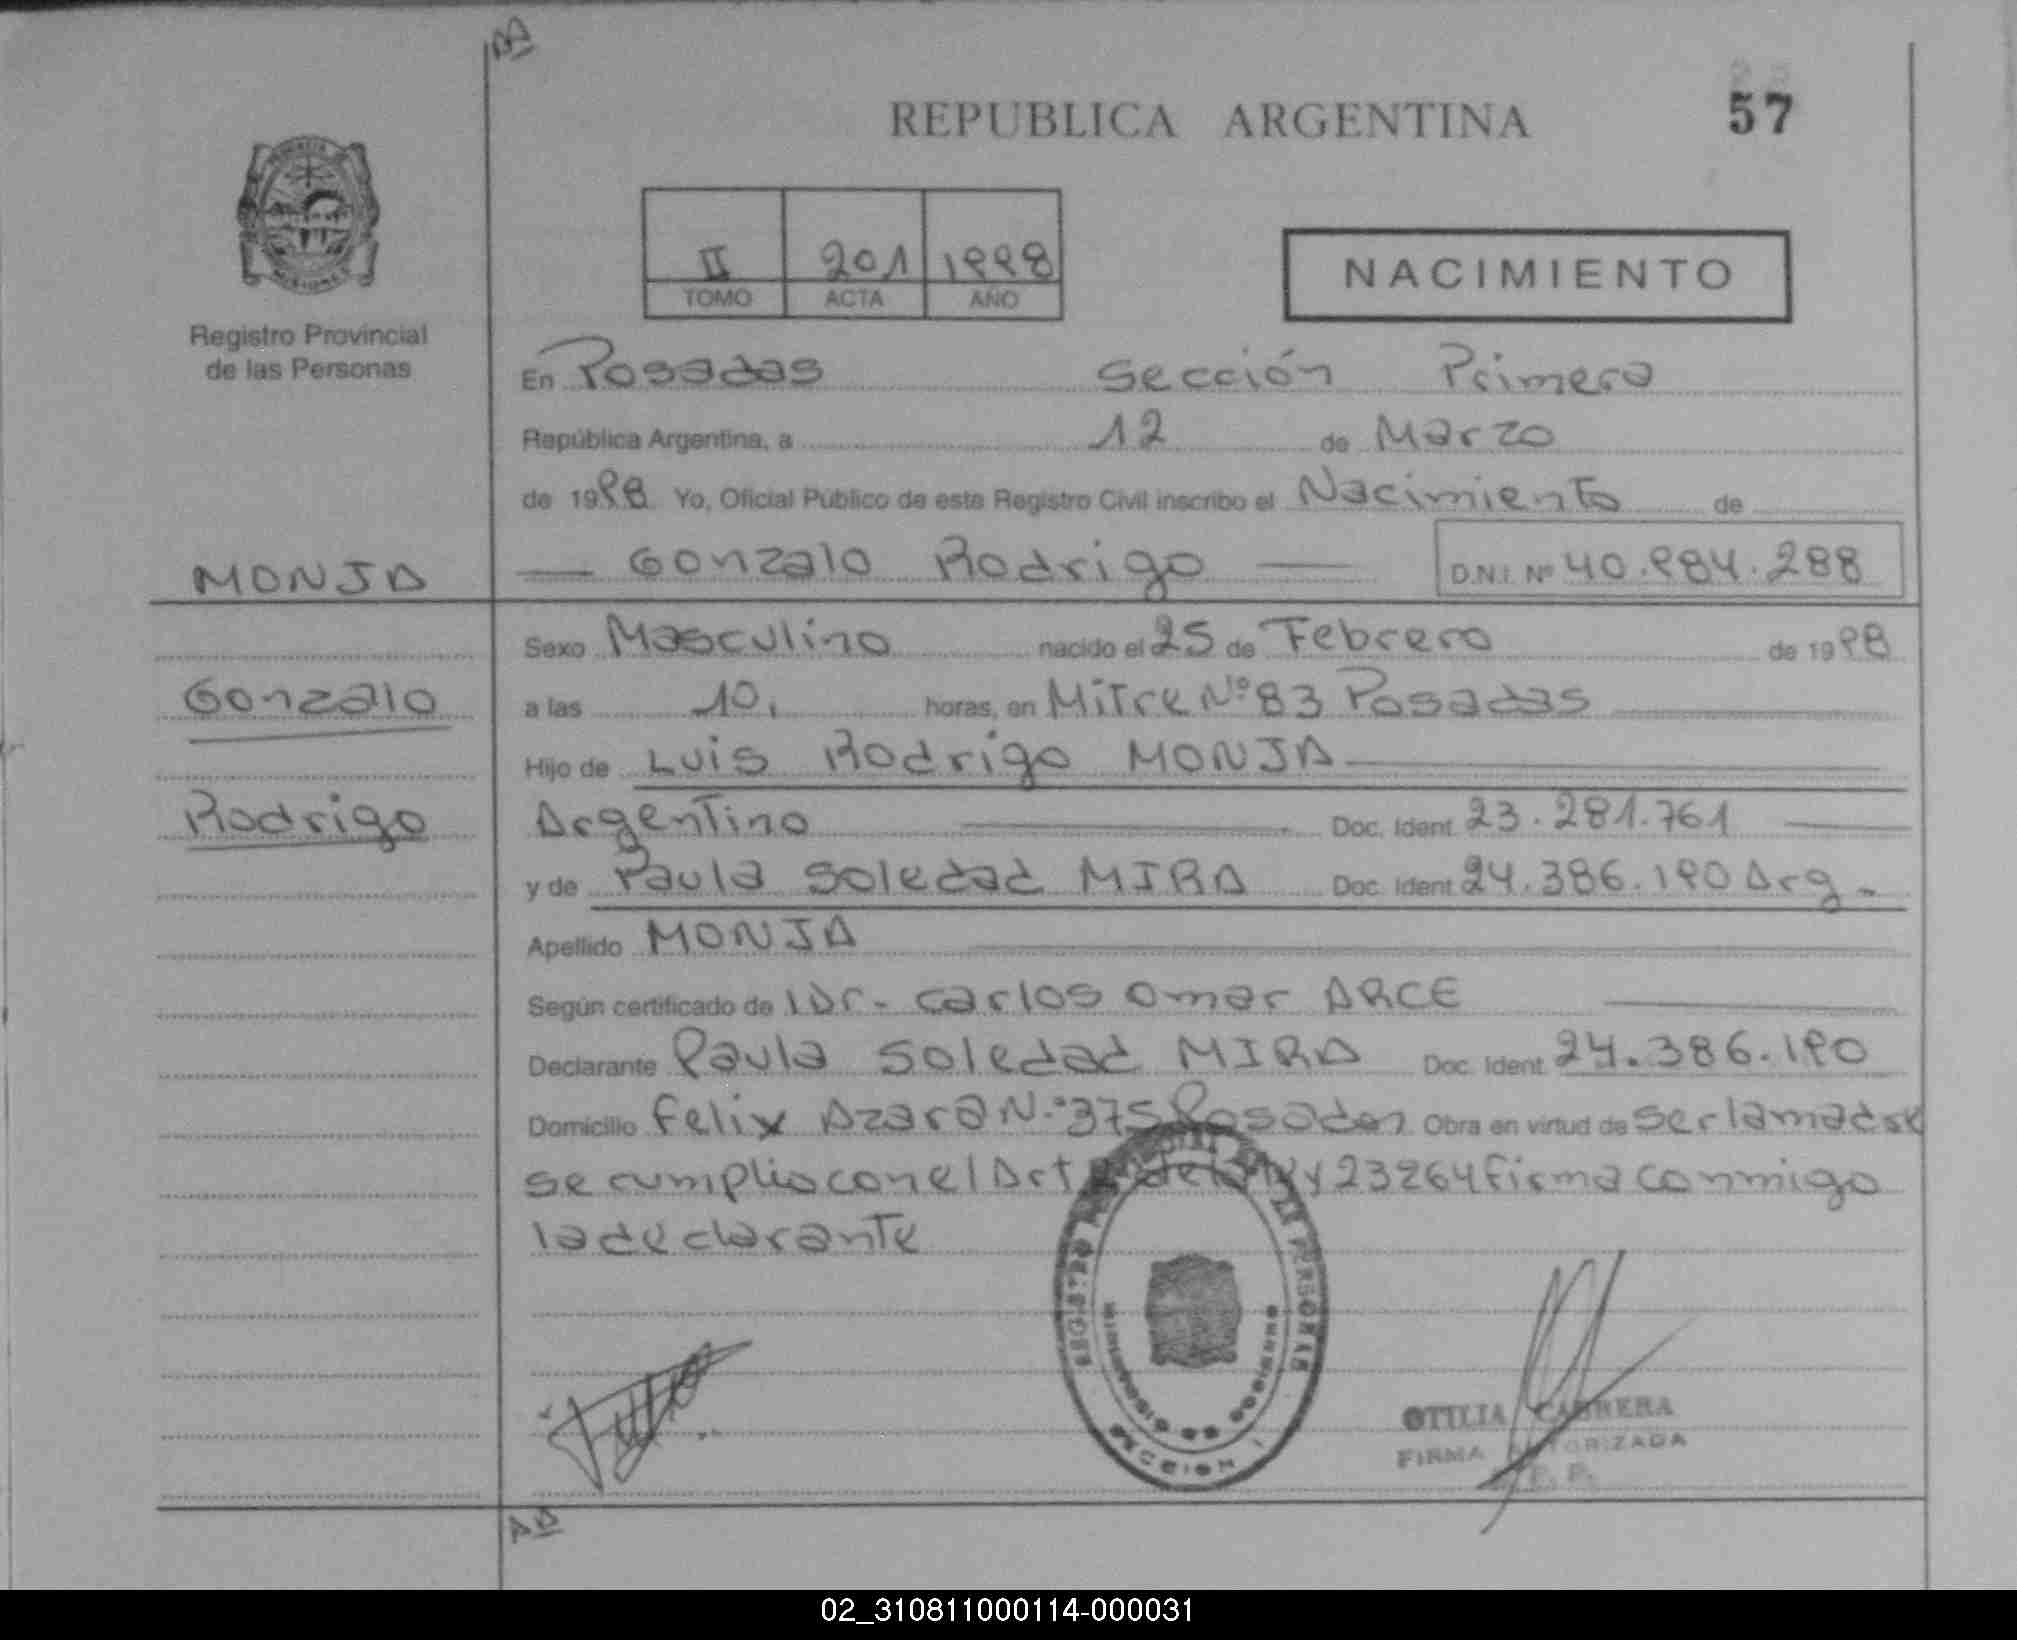 REPUBLICA ARGENTINA
57
II 201 1998
TOMO ACTA AÑO
NACIMIENTO
Registro Provincial
de las Personas
En Posadas Sección Primera
República Argentina, a 12 de Marzo
de 1998 Yo, Oficial Público de este Registro Civil inscribo el Nacimiento de
MONJA
Gonzalo Rodrigo D.N.I. Nº 40.984.288
Sexo Masculino nacido el 25 de Febrero de 1998
Gonzalo
a las 10, horas, en Mitre Nº 83 Posadas
Hijo de Luis Rodrigo MONJA
Rodrigo
Argentino Doc. Ident 23.281.761
y de Paula Soledad MIRA Doc. Ident 24.386.190 Arg.
Apellido MONJA
Según certificado de Dr. Carlos Omar ARCE
Declarante Paula Soledad MIRA Doc. Ident. 24.386.190
Domicilio Felix Azara Nº 375 Posadas Obra en virtud de ser la madre
se cumplio con el Art de la ley 23264 firma conmigo
la declarante
REGISTRO PROVINCIAL DE LAS PERSONAS
MINISTERIO DE GOBIERNO
SECCION I
OTILIA CABRERA
FIRMA AUTORIZADA
02_310811000114-000031